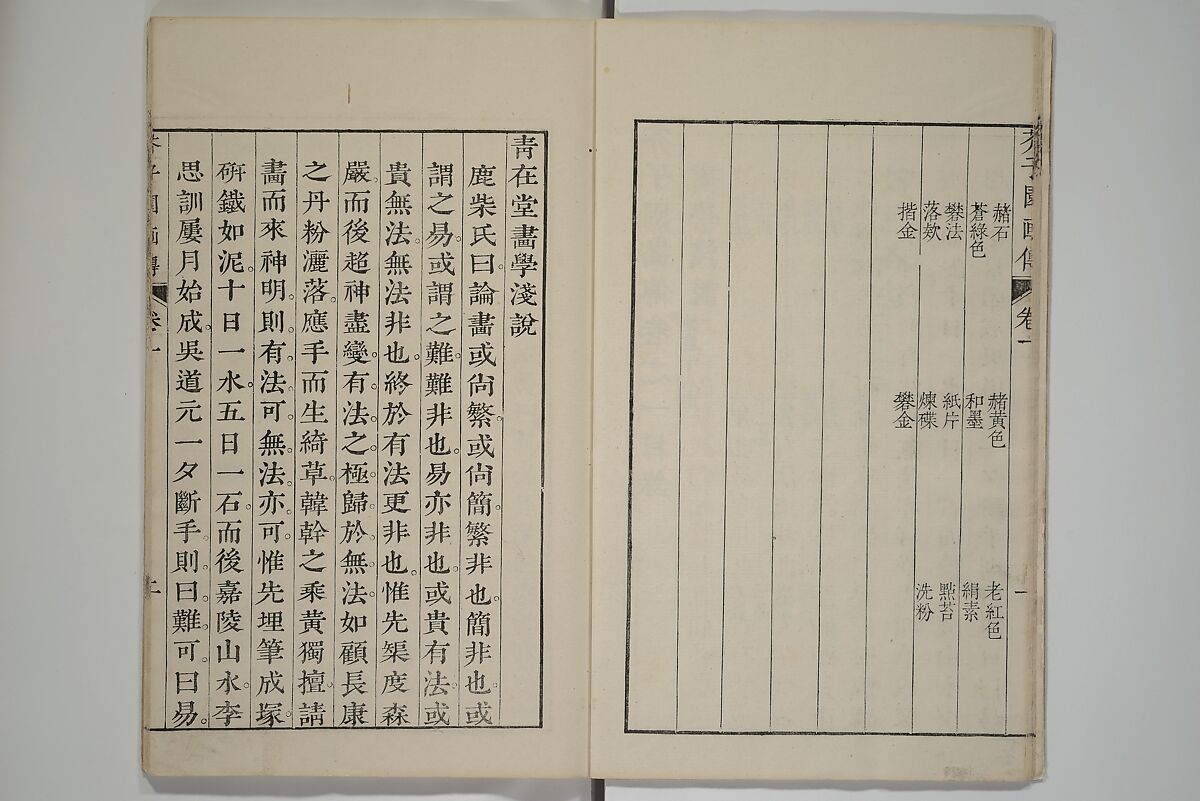 芥子園画傳 卷一 一
赭石 赭黄色 老紅色
蒼綠色 和墨 絹素
礬法 紙片 點苔
落欵 煉碟 洗粉
揩金 礬金
青在堂畵學淺說
鹿柴氏曰論畵或尙繁。或尙簡。繁非也。簡非也。或
謂之易。或謂之難。難非也。易亦非也。或貴有法。或
貴無法。無法非也。終於有法更非也。惟先榘度森
嚴。而後超神盡變。有法之極。歸於無法。如顧長康
之丹粉灑落。應手而生綺草。韓幹之乘黃獨擅。請
畵而來神明。則有法可。無法亦可。惟先埋筆成塚。
硏鐵如泥。十日一水。五日一石。而後嘉陵山水。李
思訓屢月始成。吳道元一夕斷手。則曰難可。曰易。
芥子園画傳 卷一 二